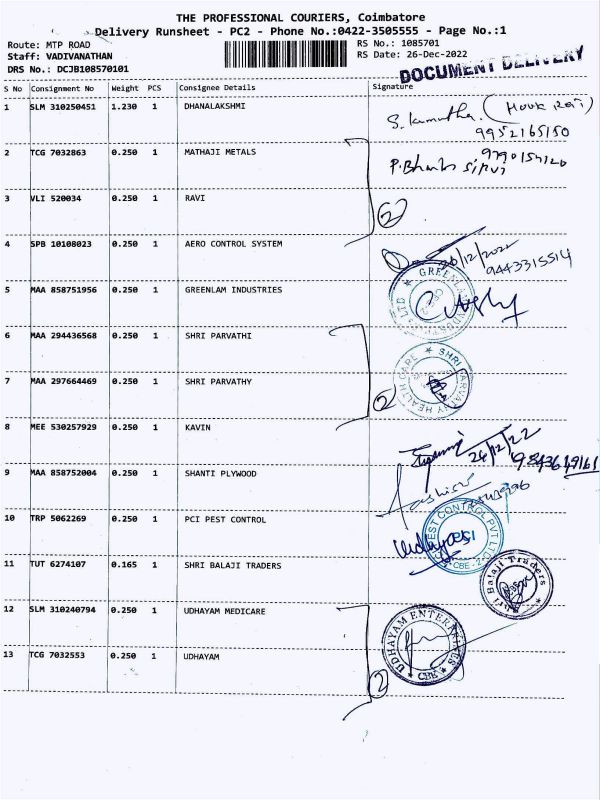 THE PROFESSIONAL COURIERS, Coimbatore
Delivery Runsheet - PC2 - Phone No.:0422-3505555 - Page No.:1
Route: MTP ROAD RS No.: 1085701
Staff: VADIVANATHAN RS Date: 26-Dec-2022
DRS No.: DCJB108570101
DOCUMENT DELIVERY
S No Consignment No Weight PCS Consignee Details Signature
1 SLM 310250451 1.230 1 DHANALAKSHMI
9952165150
2 TCG 7032863 0.250 1 MATHAJI METALS
3 VLI 520034 0.250 1 RAVI
2
4 SPB 10108023 0.250 1 AERO CONTROL SYSTEM
26/12/2022
9443315514
5 MAA 858751956 0.250 1 GREENLAM INDUSTRIES
6 MAA 294436568 0.250 1 SHRI PARVATHI
7 MAA 297664469 0.250 1 SHRI PARVATHY
2
8 MEE 530257929 0.250 1 KAVIN
26/12/22
9 MAA 858752004 0.250 1 SHANTI PLYWOOD
10 TRP 5062269 0.250 1 PCI PEST CONTROL
PEST CONTROL PVT LTD
11 TUT 6274107 0.165 1 SHRI BALAJI TRADERS
Shri Balaji Traders
12 SLM 310240794 0.250 1 UDHAYAM MEDICARE
UDHAYAM ENTERPRISES
CBE
13 TCG 7032553 0.250 1 UDHAYAM
2